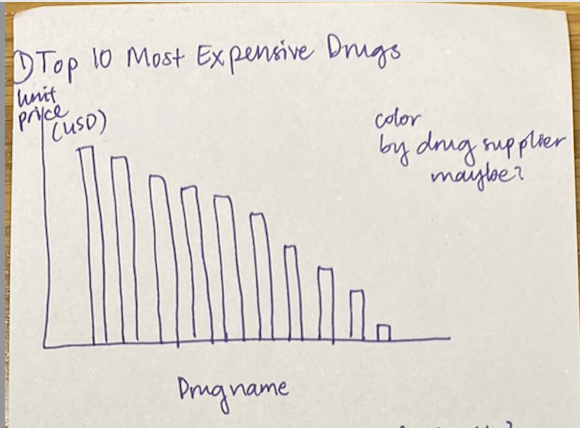 1) Top 10 Most Expensive Drugs
Unit
price
(USD)
color
by drug supplier
maybe?
Drug name